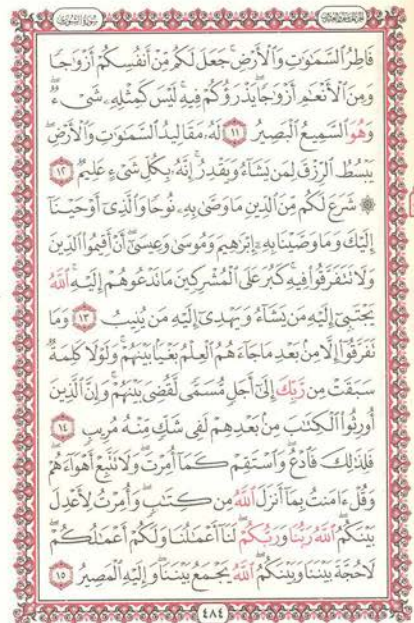 سُورَةُ الشُّورَىٰ
فَاطِرُ ٱلسَّمَٰوَٰتِ وَٱلْأَرْضِ ۚ جَعَلَ لَكُم مِّنْ أَنفُسِكُمْ أَزْوَٰجًا
وَمِنَ ٱلْأَنْعَٰمِ أَزْوَٰجًا ۖ يَذْرَؤُكُمْ فِيهِ ۚ لَيْسَ كَمِثْلِهِۦ شَىْءٌ ۖ
وَهُوَ ٱلسَّمِيعُ ٱلْبَصِيرُ ١١ لَهُۥ مَقَالِيدُ ٱلسَّمَٰوَٰتِ وَٱلْأَرْضِ ۖ
يَبْسُطُ ٱلرِّزْقَ لِمَن يَشَآءُ وَيَقْدِرُ ۚ إِنَّهُۥ بِكُلِّ شَىْءٍ عَلِيمٌ ١٢
۞ شَرَعَ لَكُم مِّنَ ٱلدِّينِ مَا وَصَّىٰ بِهِۦ نُوحًا وَٱلَّذِىٓ أَوْحَيْنَآ
إِلَيْكَ وَمَا وَصَّيْنَا بِهِۦٓ إِبْرَٰهِيمَ وَمُوسَىٰ وَعِيسَىٰٓ ۖ أَنْ أَقِيمُوا۟ ٱلدِّينَ
وَلَا تَتَفَرَّقُوا۟ فِيهِ ۚ كَبُرَ عَلَى ٱلْمُشْرِكِينَ مَا تَدْعُوهُمْ إِلَيْهِ ۚ ٱللَّهُ
يَجْتَبِىٓ إِلَيْهِ مَن يَشَآءُ وَيَهْدِىٓ إِلَيْهِ مَن يُنِيبُ ١٣ وَمَا
تَفَرَّقُوٓا۟ إِلَّا مِنۢ بَعْدِ مَا جَآءَهُمُ ٱلْعِلْمُ بَغْيًۢا بَيْنَهُمْ ۚ وَلَوْلَا كَلِمَةٌ
سَبَقَتْ مِن رَّبِّكَ إِلَىٰٓ أَجَلٍ مُّسَمًّى لَّقُضِىَ بَيْنَهُمْ ۚ وَإِنَّ ٱلَّذِينَ
أُورِثُوا۟ ٱلْكِتَٰبَ مِنۢ بَعْدِهِمْ لَفِى شَكٍّ مِّنْهُ مُرِيبٍ ١٤
فَلِذَٰلِكَ فَٱدْعُ ۖ وَٱسْتَقِمْ كَمَآ أُمِرْتَ ۖ وَلَا تَتَّبِعْ أَهْوَآءَهُمْ ۖ
وَقُلْ ءَامَنتُ بِمَآ أَنزَلَ ٱللَّهُ مِن كِتَٰبٍ ۖ وَأُمِرْتُ لِأَعْدِلَ
بَيْنَكُمُ ۖ ٱللَّهُ رَبُّنَا وَرَبُّكُمْ ۖ لَنَآ أَعْمَٰلُنَا وَلَكُمْ أَعْمَٰلُكُمْ ۖ
لَا حُجَّةَ بَيْنَنَا وَبَيْنَكُمُ ۖ ٱللَّهُ يَجْمَعُ بَيْنَنَا ۖ وَإِلَيْهِ ٱلْمَصِيرُ ١٥
٤٨٤